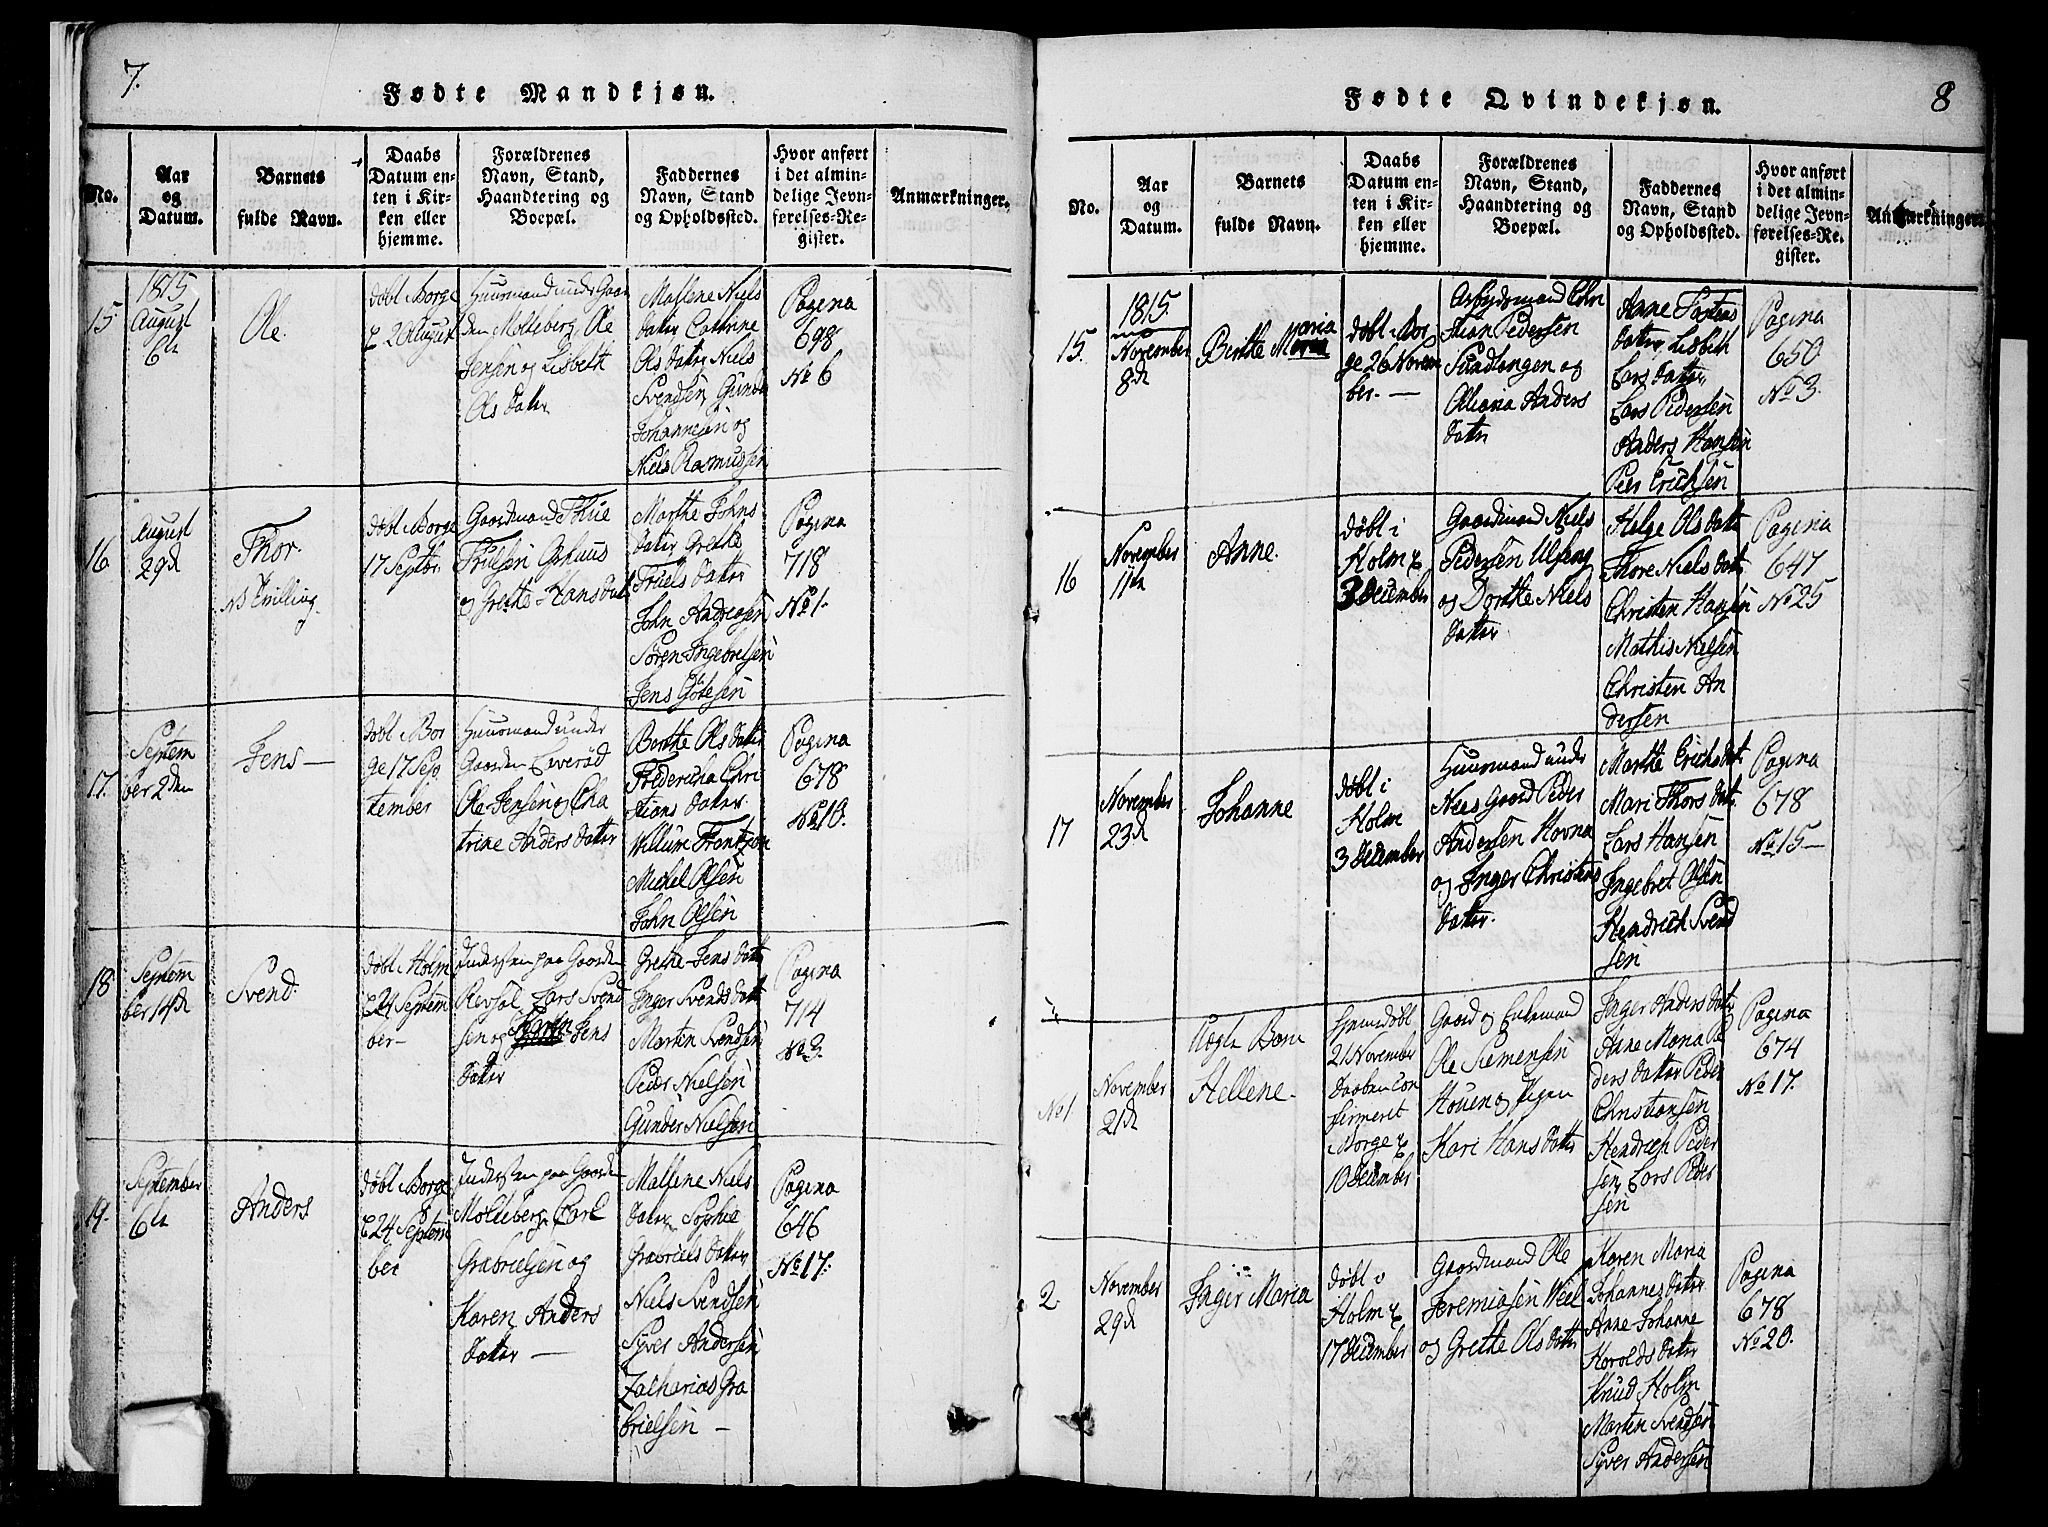 7.
Fødte Mandkjøn.
No.
Aar
og
Datum.
Barnets
fulde Navn.
Daabs
Datum en-
ten i Kir-
ken eller
hjemme.
Forældrenes
Navn, Stand,
Haandtering og
Boepæl.
Faddernes
Navn, Stand
og Opholdssted.
Hvor anført
i det almin-
delige Jevn-
førelses-Re-
gister.
Anmærkninger.
15
1815
August
6te
Ole.
døbt i Borge
20 August
Huusmand under Gaar
den Molteberg, Ole
Jensen og Lisbeth
Ols datter
Mallene Niels
datter Cathrine
Ols datter Niels
Svendsen, Gunder
Johannesen og
Niels Rasmussen
Pagina
698
No 6
16
August
29d
Thor.
NB Tvilling
døbt Borge
17 Septbr
Gaardmand Thue
Truelsen
og Grethe Hans datt
Marthe Johns
datter Grethe
Truels datter
John Andreasen
Søren Ingebretsen
Jens Götesen
Pagina
718
No 1.
17.
Septem
ber 2den
Jens —
døbt i Bor
ge 17 Sep
tember
Huusmand under
Gaarden Evenrød
Ole Jensen og Cha
trine Anders datter
Berthe Ols datter
Fredericha Chri
stians datter
Willum Frantzen
Michel Olsen
John Olsen
Pagina
678
No 10.
18
Septem
ber 14d
Svend.
døbt i Holm
24 Septem
ber —
Inderst paa Gaarden
Revhol Lars Svend
sen og Jens
datter
Grethe Jens datt
Inger Svends datt
Marten Svendsen
Peder Nielsen
Gunder Nielsen
Pagina
714
No 2.
19.
September
6te
Anders
døbt i Borge
24 Septem
ber
Inderst paa Gaarden
Molteberg, Carl
Grabrielsen og
Karen Anders
datter —
Mallene Niels
datter Sophie
Grabriels datter
Niels Svendsen
Syver Andersen
Zacharias Gra
brielsen —
Pagina
646
No 17.
8
Fødte Qvindekjøn.
No.
Aar
og
Datum.
Barnets
fulde Navn.
Daabs
Datum en-
ten i Kir-
ken eller
hjemme.
Forældrenes
Navn, Stand,
Haandtering og
Boepæl.
Faddernes
Navn, Stand
og Opholdssted.
Hvor anført
i det almin-
delige Jevn-
førelses-Re-
gister.
Anmærkninger.
15.
1815.
November
8d
Berthe Maria
døbt i Bor
ge 26 Novem
ber. —
Arbejdsmand Chri
stian Pedersen
Sundlongen og
Oliana Anders
datter
Anne
datter Lisbeth
Lars datter
Lars Pedersen
Anders Hansen
Peer Erichsen
Pagina
650
No 3.
16
November
11te
Anne.
døbt i
Holm
3 December
Gaardmand Niels
Pedersen Ulfeng
og Dorthe Niels
datter
Helge Ols datt
Thore Niels datt
Christen Hansen
Mathis Nielsen
Christen An
dersen
Pagina
647
No 25
17
November
23d
Johanne
døbt i
Holm
3 December
Huusmand under
Nes Gaard Peder
Andersen Hovna
og Inger Christens
datter.
Marthe Erichs datt
Mari Thors datt
Lars Hansen
Ingebret Olsen
Hendrich Svend
sen
Pagina
678
No 15 —
No 1
November
21d
Uægte Barn
Hellene.
hjemdøbt
21 November
Daaben con
firmeret
Borge
10 December
Gaard og Enkemand
Ole Siemensen
Houen og Pigen
Kari Hans datter
Inger Anders datt
Anne Maria Pe
ders datter Peder
Christiansen
Hendrich Peder
sen, Lars Peder
sen
Pagina
674
No 17.
2.
November
29d
Inger Maria
døbt i
Holm
17 December
Gaardmand Ole
Jeremiasen Viel
og Grethe Ols datter
Karen Maria
Johannes datter
Anne Johanne
Harolds datter
Knud Holm
Marten Svendsen
Syver Andersen
Pagina
678
No 20.